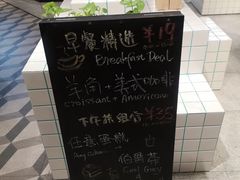 早餐精選 ¥19
Breakfast Deal
羊角+美式咖啡
Croissant + Americano
下午茶组合 ¥35
任意蛋糕
Any cake
伯爵茶
Earl Grey